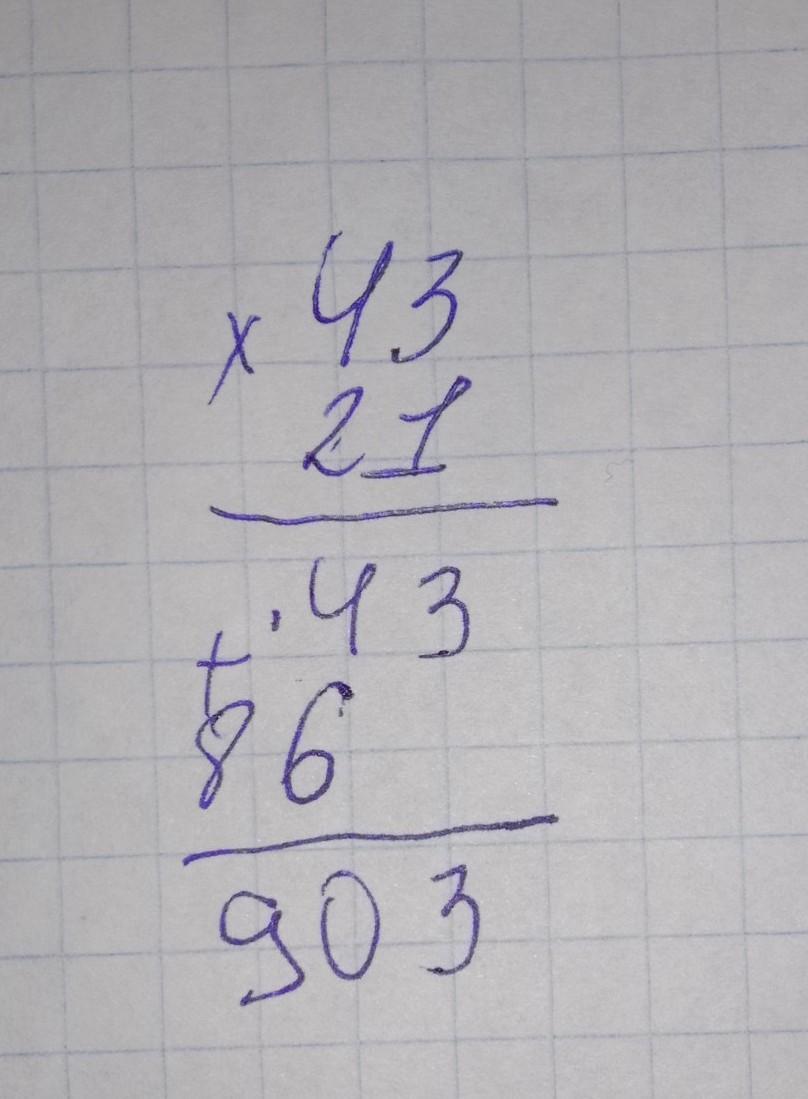 × 43
21
· 43
+
86
903